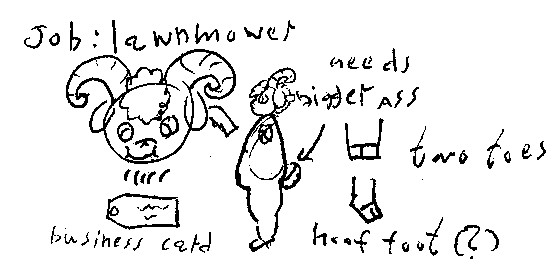 Job: lawnmower
needs
bigger ass
two toes
business card
hoof foot (?)